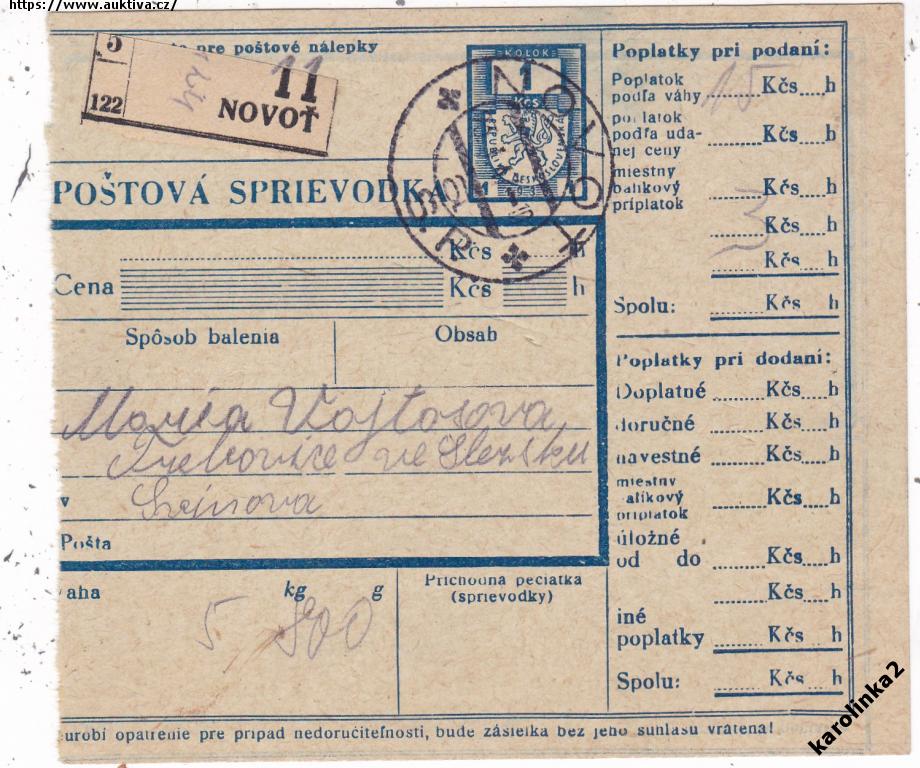 https://www.auktiva.cz/
pre poštové nálepky
5
122
11
NOVOŤ
KOLOK
1
Kčs
NOVOŤ
POŠTOVÁ SPRIEVODKA
Kčs h
Cena Kčs h
Spôsob balenia Obsah
Maria Vojtasova
ve Slezsku
v
Pošta
aha kg g
5 800
Príchodná pečiatka
(sprievodky)
Poplatky pri podaní:
Poplatok
podľa váhy 15 Kčs h
poplatok
podľa uda-
nej ceny Kčs h
miestny
balíkový
príplatok Kčs h
Kčs h
Kčs h
Spolu: Kčs h
Poplatky pri dodaní:
Doplatné Kčs h
doručné Kčs h
návestné Kčs h
miestny
alíkový
príplatok Kčs h
úložné
od do Kčs h
Kčs h
iné
poplatky Kčs h
Spolu: Kčs h
urobí opatrenie pre prípad nedoručiteľnosti, bude zásielka bez jeho súhlasu vrátená!
karolinka2